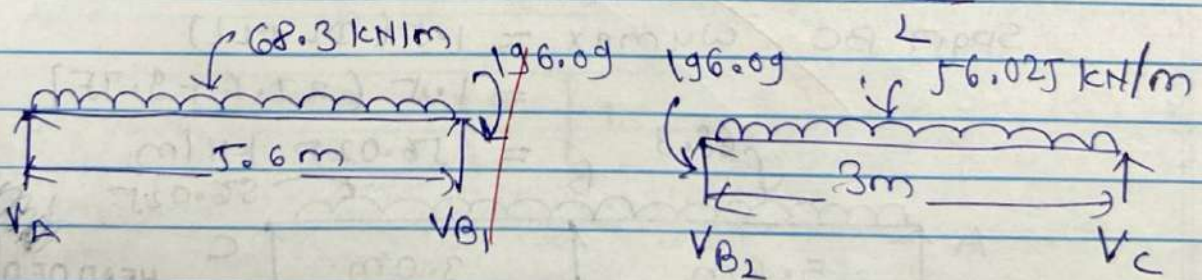 68.3 kN/m
196.09 196.09 56.025 kN/m
5.6m 3m
VA VB1 VB2 VC